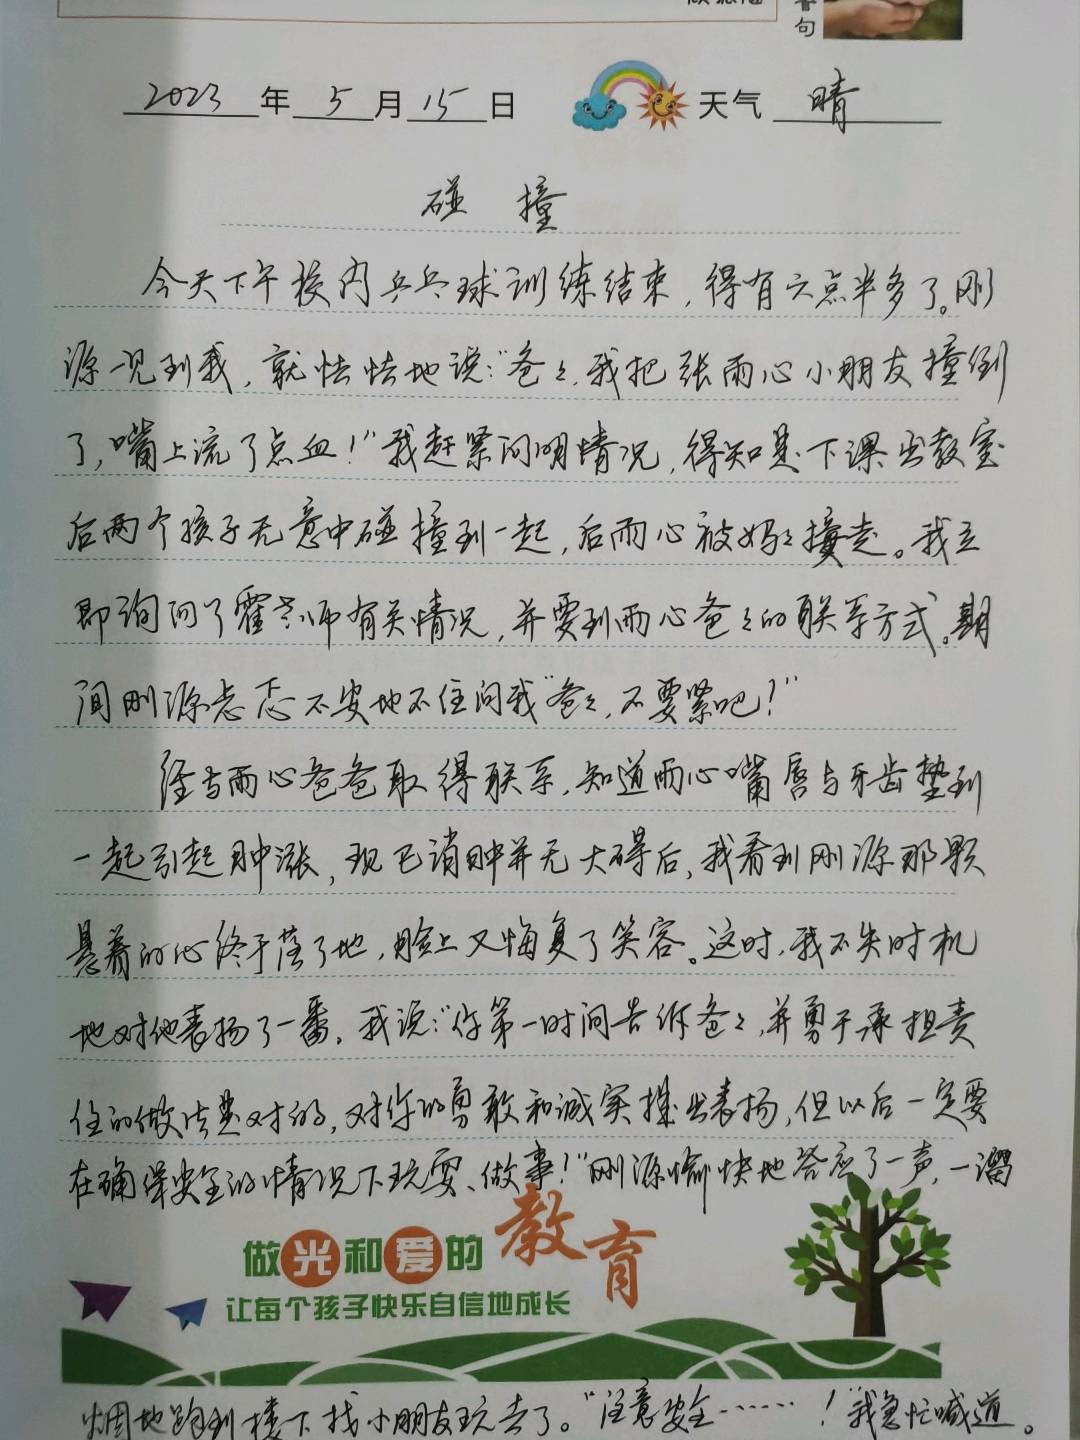 句
2023年5月15日 天气 晴
碰 撞
今天下午校内乒乓球训练结束，得有六点半多了。刚
源一见到我，就怯怯地说：“爸々，我把张雨心小朋友撞倒
了，嘴上流了点血！”我赶紧问明情况，得知是下课出教室
后两个孩子无意中碰撞到一起，后雨心被妈々接走。我立
即询问了霍老师有关情况，并要到雨心爸々的联系方式。期
间刚源忐忑不安地不住问我“爸々，不要紧吧？”
经与雨心爸爸取得联系，知道雨心嘴唇与牙齿垫到
一起引起肿涨，现已消肿并无大碍后，我看到刚源那颗
悬着的心终于落了地，脸上又恢复了笑容。这时，我不失时机
地对他表扬了一番。我说：“你第一时间告诉爸々，并勇于承担责
任的做法是对的，对你的勇敢和诚实提出表扬，但以后一定要
在确保安全的情况下玩耍、做事！”刚源愉快地答应了一声，一溜
做光和爱的教育
让每个孩子快乐自信地成长
烟地跑到楼下找小朋友玩去了。“注意安全……！”我急忙喊道。